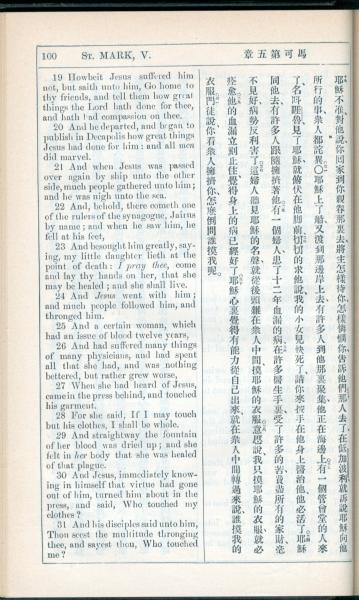 100 ST. MARK, V. 章五第可馬
19 Howbeit Jesus suffered him
not, but saith unto him, Go home to
thy friends, and tell them how great
things the Lord hath done for thee,
and hath had compassion on thee.
20 And he departed, and began to
publish in Decapolis how great things
Jesus had done for him: and all men
did marvel.
21 And when Jesus was passed
over again by ship unto the other
side, much people gathered unto him;
and he was nigh unto the sea.
22 And, behold, there cometh one
of the rulers of the synagogue, Jairus
by name; and when he saw him, he
fell at his feet,
23 And besought him greatly, say-
ing, my little daughter lieth at the
point of death: I pray thee, come
and lay thy hands on her, that she
may be healed; and she shall live.
24 And Jesus went with him;
and much people followed him, and
thronged him.
25 And a certain woman, which
had an issue of blood twelve years,
26 And had suffered many things
of many physicians, and had spent
all that she had, and was nothing
bettered, but rather grew worse,
27 When she had heard of Jesus,
came in the press behind, and touched
his garment.
28 For she said, If I may touch
but his clothes, I shall be whole.
29 And straightway the fountain
of her blood was dried up; and she
felt in her body that she was healed
of that plague.
30 And Jesus, immediately know-
ing in himself that virtue had gone
out of him, turned him about in the
press, and said, Who touched my
clothes?
31 And his disciples said unto him,
Thou seest the multitude thronging
thee, and sayest thou, Who touched
me?
耶穌不准對他說你回家到你親眷那裏去將主怎樣待你怎樣憐憫你告訴他們那人去了在低加波利就訴說耶穌向他
所行的事衆人都詫異○耶穌上了船又渡到那邊岸上去有許多人到他那裏聚集他正在海邊上有一個管會堂的人來
了名叫睚魯見了耶穌就俯伏在他脚前切切的求他說我的小女兒快死了請你來按手在他身上醫治他他必活了耶穌
同他去有許多人跟隨擁擠著他有一個婦人患了十二年血漏的病在許多醫生手裏受了許多的苦費盡所有的家財毫
不見好病勢反利害了這婦人聽見耶穌的名聲就從後頭雜在衆人中間摸耶穌的衣服意思說我只摸耶穌的衣服就必
痊愈他的血漏立刻止住覺得身上的病已經好了耶穌心裏覺得有能力從自己出來就在衆人中間轉過來說誰摸我的
衣服門徒說你看衆人擁擠你怎麽倒問誰摸我呢